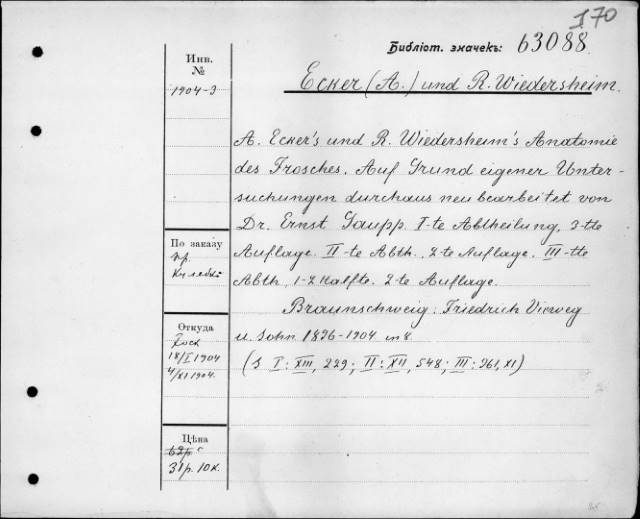 170
Библіот. значекъ: 63088.
Инв. №
1904-3
Ecker (A.) und R. Wiedersheim.
A. Ecker's und R. Wiedersheim's Anatomie
des Frosches. Auf Grund eigener Unter-
suchungen durchaus neu bearbeitet von
Dr. Ernst Gaupp. I-te Abtheilung, 3-tte
Auflage. II-te Abth., 2-te Auflage. III-tte
Abth, 1-2 Halfte. 2-te Auflage.
Braunschweig: Friedrich Vieweg
u. Sohn 1896-1904 in 8.
(S I: XIII, 229; II: XII, 548; III: 961, XI)
По заказу
пр.
Откуда
18/I 1904
4/XI 1904.
Цѣна
62р
31р. 10к.